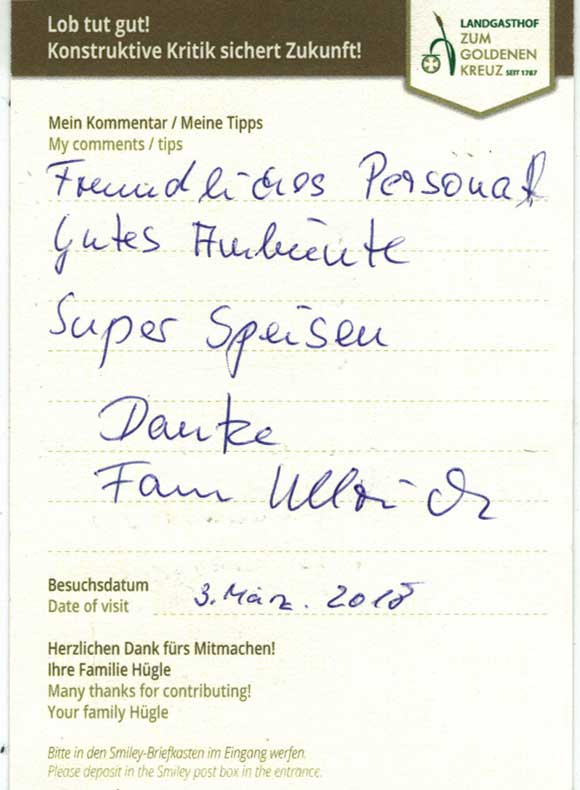 Lob tut gut!
Konstruktive Kritik sichert Zukunft!
LANDGASTHOF
ZUM
GOLDENEN
KREUZ SEIT 1787
Mein Kommentar / Meine Tipps
My comments / tips
Freundliches Personal
Gutes Ambiente
Super Speisen
Danke
Fam Ullrich
Besuchsdatum
Date of visit
3. März. 2018
Herzlichen Dank fürs Mitmachen!
Ihre Familie Hügle
Many thanks for contributing!
Your family Hügle
Bitte in den Smiley-Briefkasten im Eingang werfen.
Please deposit in the Smiley post box in the entrance.